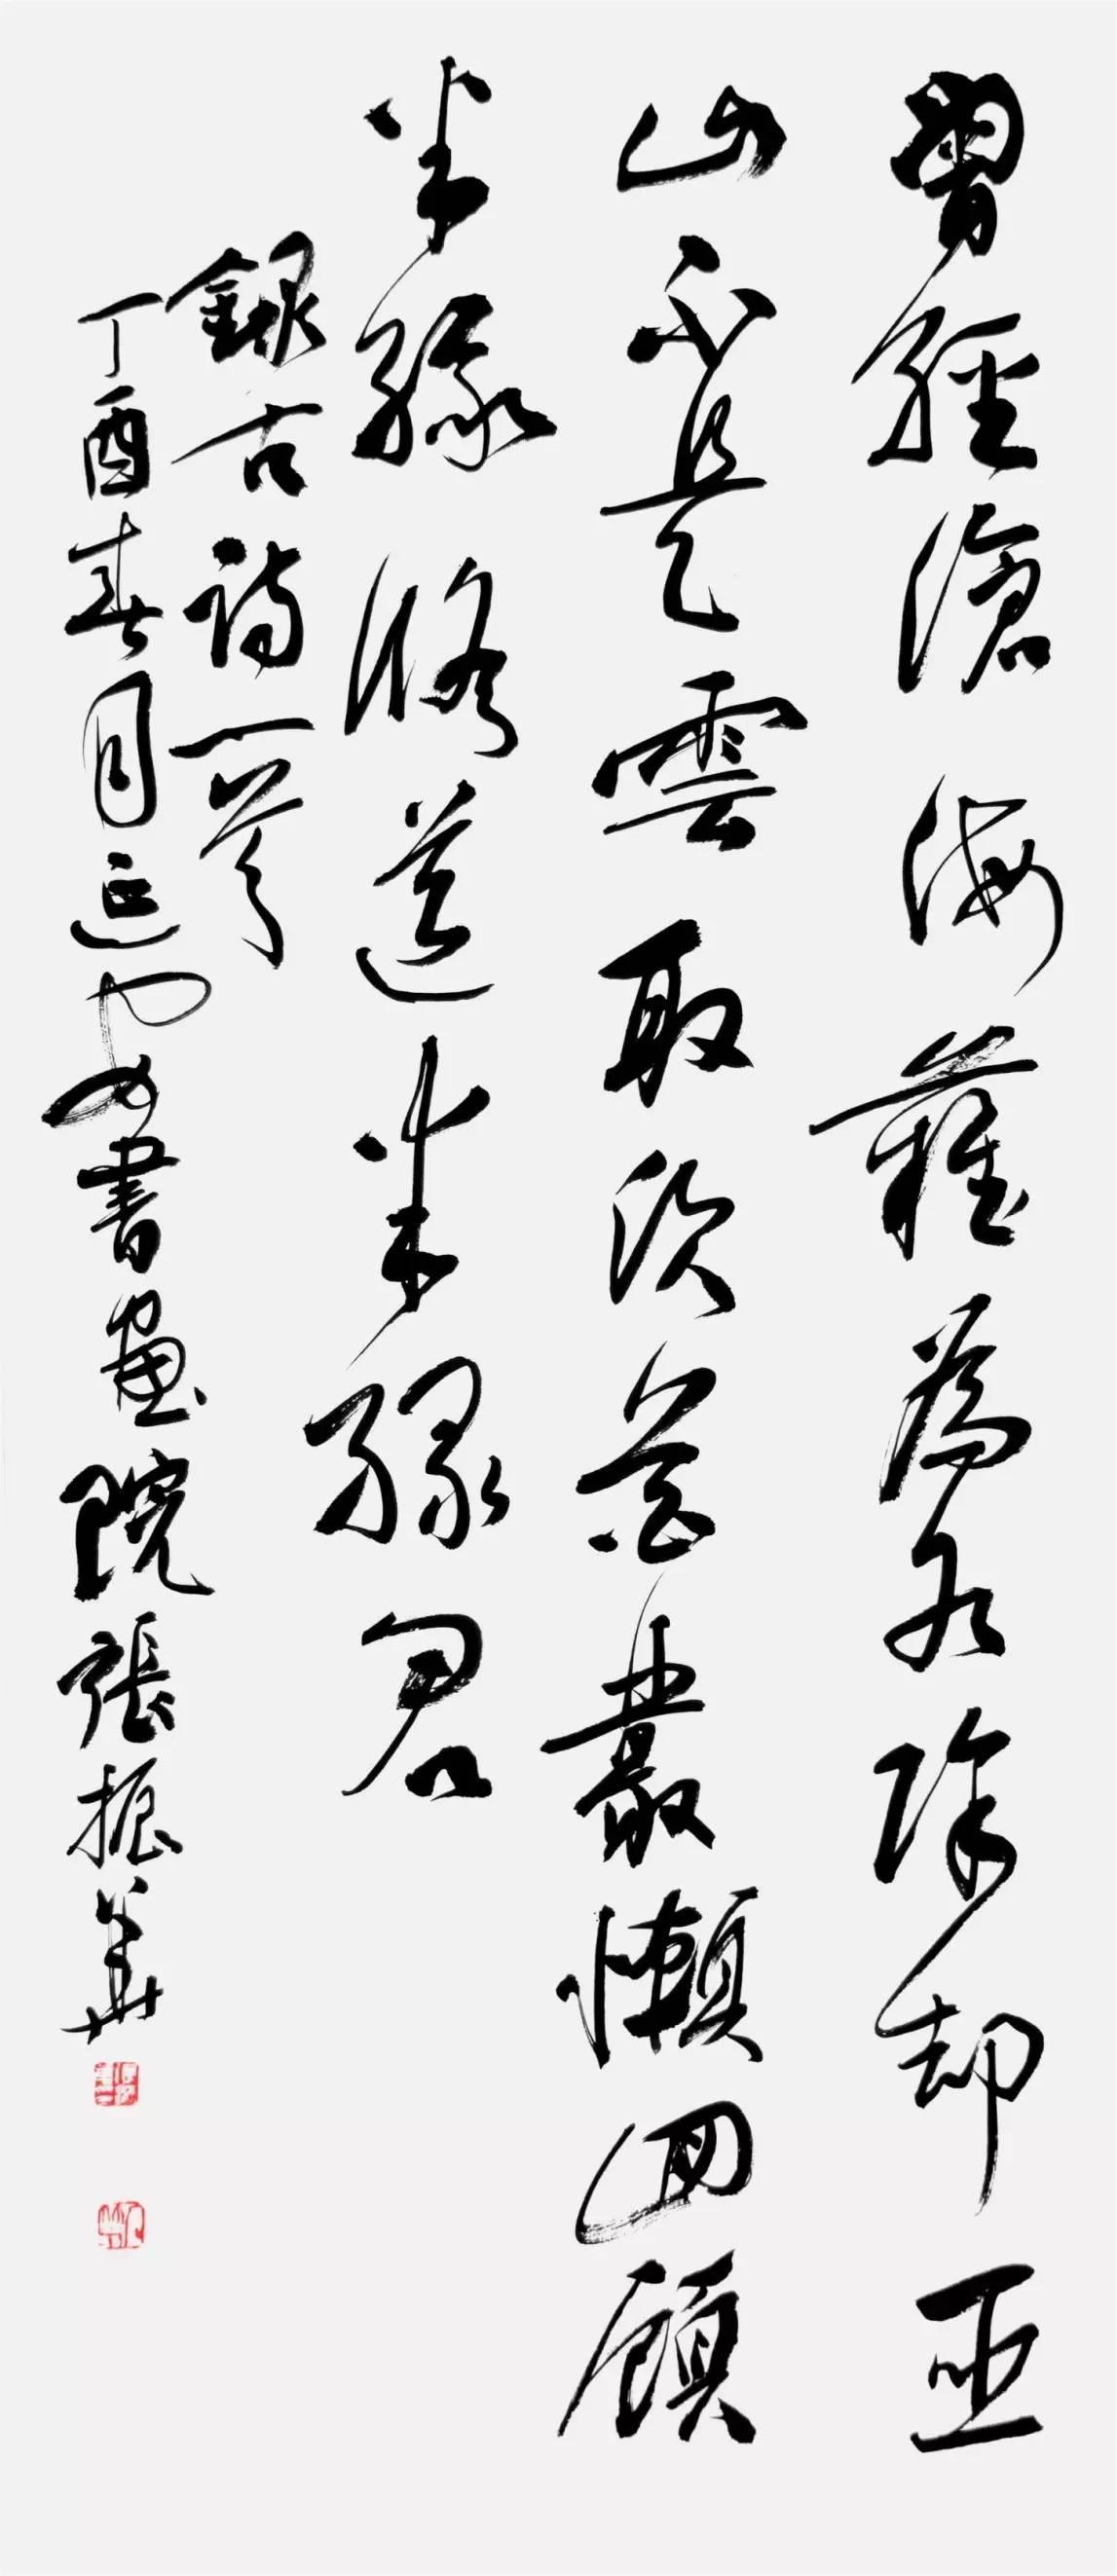 曾經滄海難為水除却巫
山不是雲取次花叢懶迴顧
半緣修道半緣君
錄古詩一首
丁酉春月延安書畫院張振華